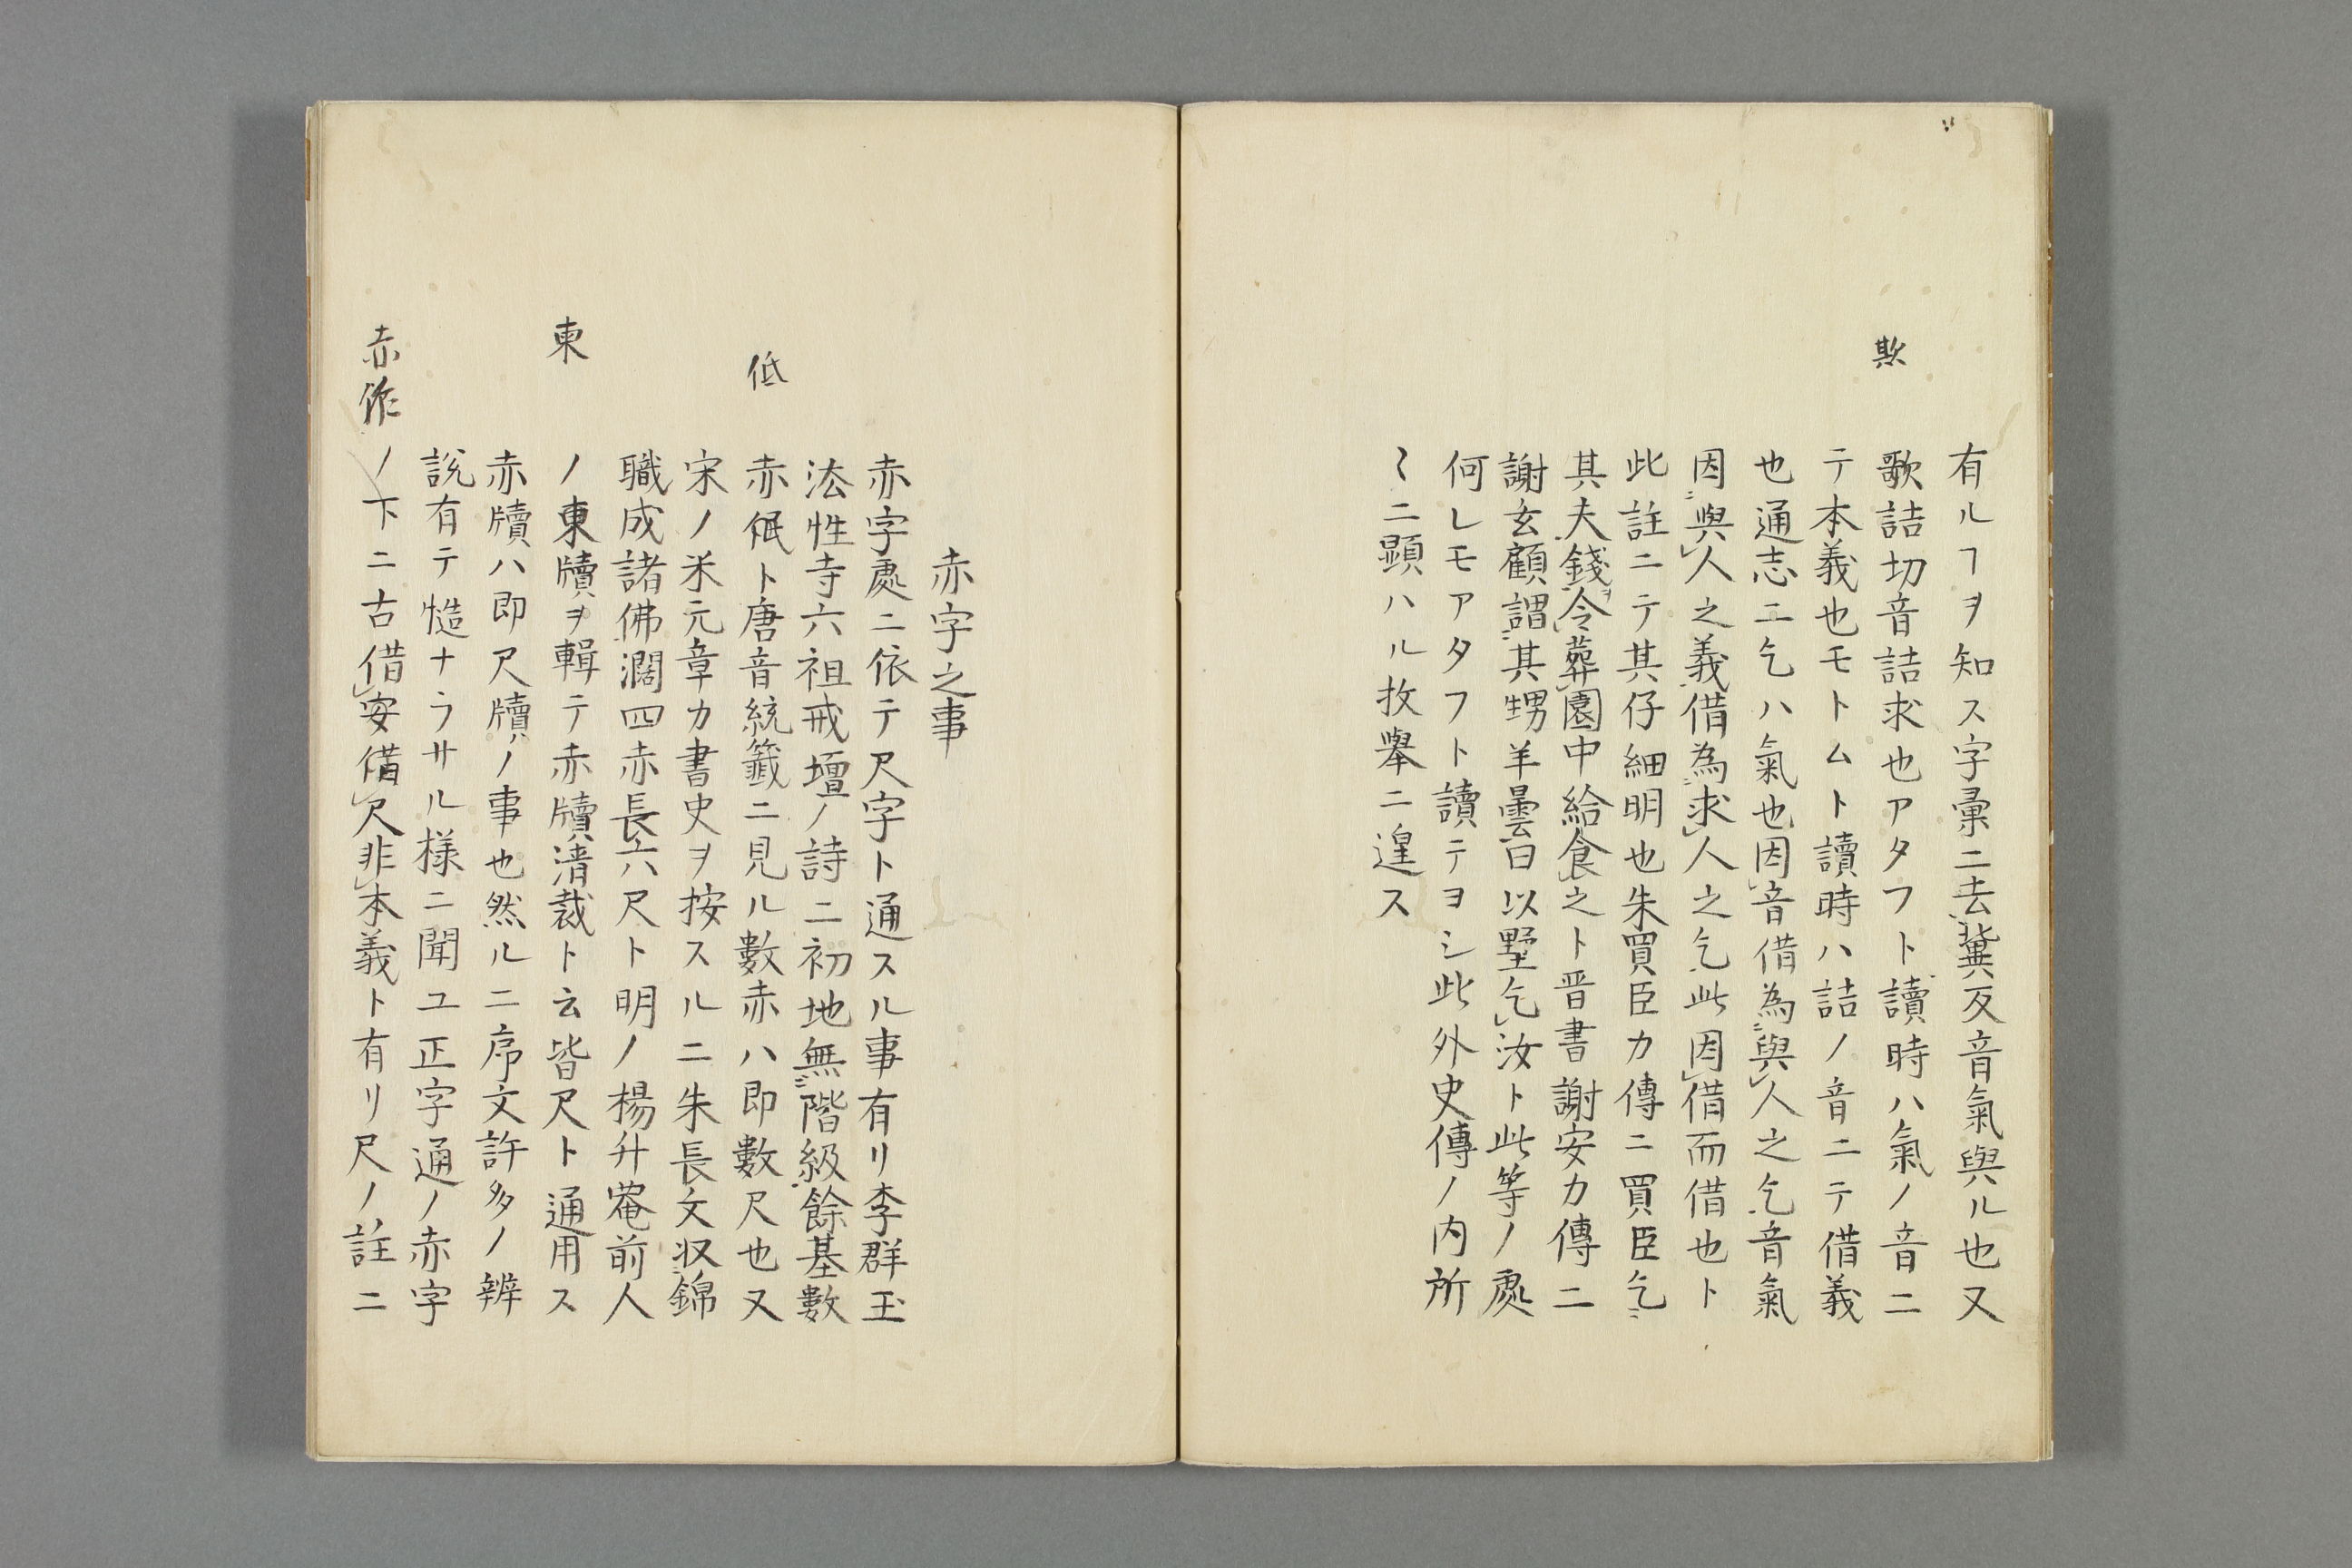 有ルヿヲ知ス字彙ニ去冀反音氣與ル也又
欺
歌詰切音詰求也アタフト讀時ハ氣ノ音ニ
テ本義也モトムト讀時ハ詰ノ音ニテ借義
也通志ニ乞ハ氣也因音借為與人之乞音氣
因與人之義借為求人之乞此因借而借也ト
此註ニテ其仔細明也朱買臣カ傳ニ買臣乞
其夫錢令葬園中給食之ト晋書謝安カ傳ニ
謝玄顧謂其甥羊曇曰以墅乞汝ト此等ノ處
何レモアタフト讀テヨシ此外史傳ノ内所
〻ニ顕ハル枚舉ニ遑ス
赤字之事
赤字處ニ依テ尺字ト通スル事有リ李群玉
法性寺六祖戒壇ノ詩ニ初地無階級餘基數
低
赤彽ト唐音統籤ニ見ル數赤ハ即數尺也又
宋ノ米元章カ書史ヲ按スルニ朱長文収錦
職成諸佛濶四赤長六尺ト明ノ楊升菴前人
柬
ノ東牘ヲ輯テ赤牘清裁ト云皆尺ト通用ス
赤牘ハ即尺牘ノ事也然ルニ序文許多ノ辨
説有テ慥ナラサル様ニ聞ユ正字通ノ赤字
赤作
ノ下ニ古借安借尺非本義ト有リ尺ノ註ニ